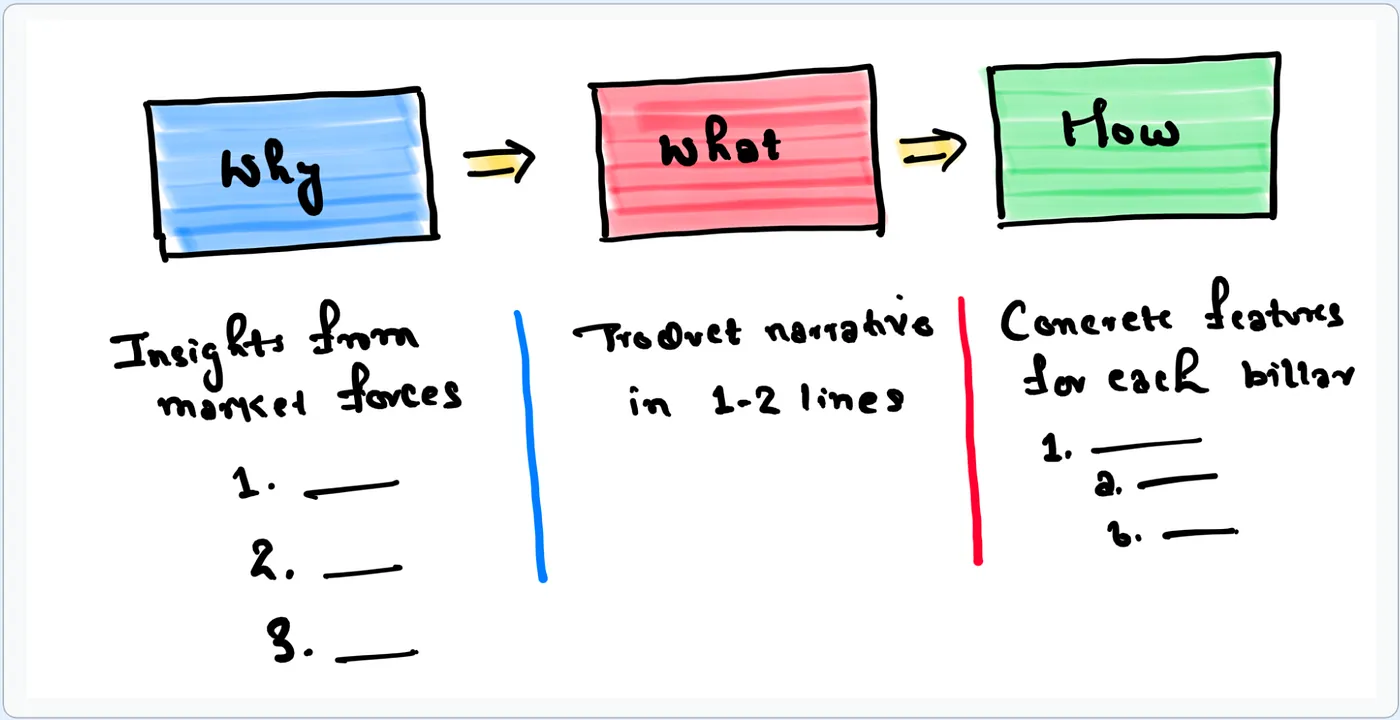 Why
What
How
Insights from
market forces
1.
2.
3.
Product narrative
in 1-2 lines
Concrete features
for each billar
1.
a.
b.